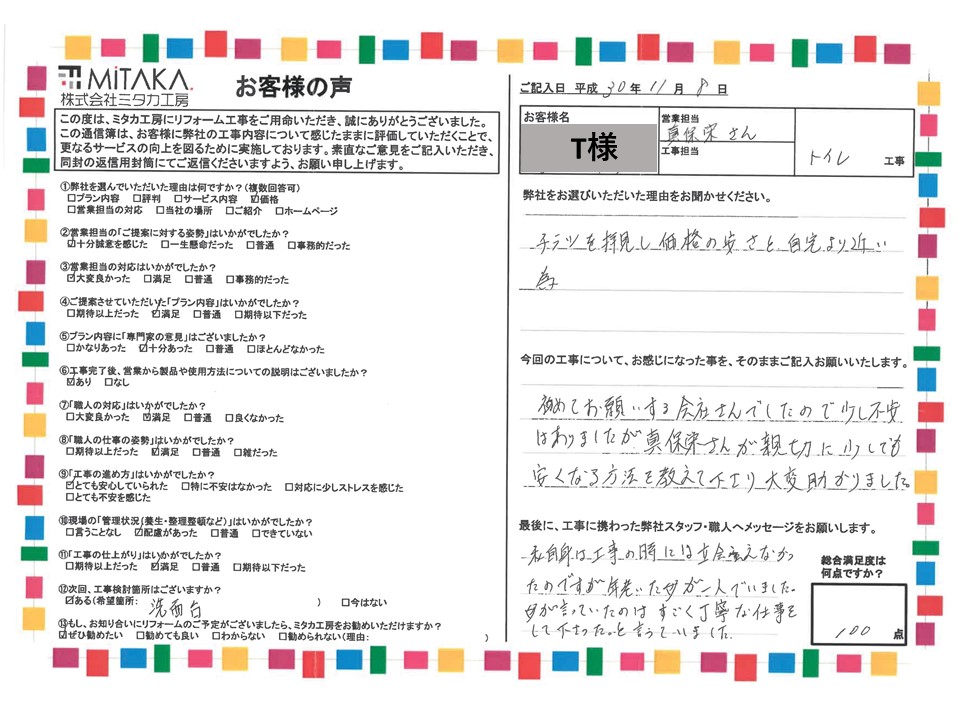 MiTAKA.
株式会社ミタカ工房
お客様の声
この度は、ミタカ工房にリフォーム工事をご用命いただき、誠にありがとうございました。
この通信簿は、お客様に弊社の工事内容について感じたままに評価していただくことで、
更なるサービスの向上を図るために実施しております。素直なご意見をご記入いただき、
同封の返信用封筒にてご返信くださいますよう、お願い申し上げます。
①弊社を選んでいただいた理由は何ですか？（複数回答可）
□プラン内容 □評判 □サービス内容 ☑価格
□営業担当の対応 □当社の場所 □ご紹介 □ホームページ
②営業担当の「ご提案に対する姿勢」はいかがでしたか？
☑十分誠意を感じた □一生懸命だった □普通 □事務的だった
③営業担当の対応はいかがでしたか？
☑大変良かった □満足 □普通 □事務的だった
④ご提案させていただいた「プラン内容」はいかがでしたか？
□期待以上だった ☑満足 □普通 □期待以下だった
⑤プラン内容に「専門家の意見」はございましたか？
□かなりあった ☑十分あった □普通 □ほとんどなかった
⑥工事完了後、営業から製品や使用方法についての説明はございましたか？
☑あり □なし
⑦「職人の対応」はいかがでしたか？
□大変良かった ☑満足 □普通 □良くなかった
⑧「職人の仕事の姿勢」はいかがでしたか？
□期待以上だった ☑満足 □普通 □雑だった
⑨「工事の進め方」はいかがでしたか？
☑とても安心していられた □特に不安はなかった □対応に少しストレスを感じた
□とても不安を感じた
⑩現場の「管理状況（養生・整理整頓など）」はいかがでしたか？
□言うことなし ☑配慮があった □普通 □できていない
⑪「工事の仕上がり」はいかがでしたか？
□期待以上だった ☑満足 □普通 □期待以下だった
⑫次回、工事検討箇所はございますか？
☑ある（希望箇所： 洗面台 ） □今はない
⑬もし、お知り合いにリフォームのご予定がございましたら、ミタカ工房をお勧めいただけますか？
☑ぜひ勧めたい □勧めても良い □わからない □勧められない（理由： ）
ご記入日 平成 30年 11月 8日
お客様名
T様
営業担当
真保栄さん
工事担当
トイレ 工事
弊社をお選びいただいた理由をお聞かせください。
チラシを拝見し価格の安さと自宅より近い
為
今回の工事について、お感じになった事を、そのままご記入お願いいたします。
初めてお願いする会社さんでしたので少し不安
はありましたが真保栄さんが親切に少しでも
安くなる方法を教えて下さり大変助かりました。
最後に、工事に携わった弊社スタッフ・職人へメッセージをお願いします。
私自身は工事の時には立会えなかっ
たのですが年老いた母が一人でいました。
母が言っていたのはすごく丁寧な仕事を
して下さった。と言っていました。
総合満足度は
何点ですか？
100 点